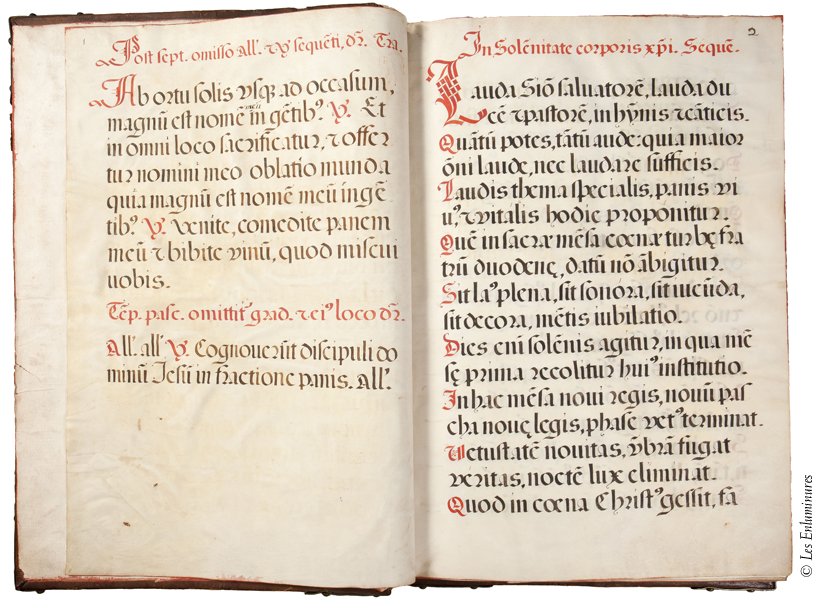 Post sept. omisso All'. et ℣ sequēti, dr̄. Tra.
Ab ortu solis vsq₃ ad occasum,
magnū est nomē meū in gētib⁹. ℣. Et
in omni loco sacrificatur, ⁊ offer
tur nomini meo oblatio munda
quia magnū est nomē meū in gē
tib⁹. ℣. Venite, comedite panem
meū ⁊ bibite vinū, quod miscui
uobis.
Tēp. pasc. omittit̄ grad. ⁊ ei⁹ loco dr̄.
All'. all'. ℣. Cognouerūt discipuli do
minū Jesū in fractione panis. All'.
2.
In Solēnitate corporis xp̄i. Sequē.
Lauda Siō saluatorē, lauda du
cē ⁊ pastorē, in hȳnis ⁊ cāticis.
Quātū potes, tātū aude: quia maior
ōni laude, nec laudare sufficis.
Laudis thema specialis, panis vi
u⁹, ⁊ vitalis hodie proponitur.
Quē in sacræ mēsa cœnæ turbę fra
trū duodenę, datū nō ābigitur.
Sit la⁹ plena, sit sonora, sit iucūda,
sit decora, mētis iubilatio.
Dies enī solēnis agitur, in qua mē
sę prima recolitur hui⁹ institutio.
In hac mēsa noui regis, nouū pas
cha nouę legis, phasē vet⁹ terminat.
Vetustatē nouitas, v̄brā fugat
veritas, noctē lux eliminat.
Quod in cœna Christ⁹ gessit, fa
© Les Enluminures